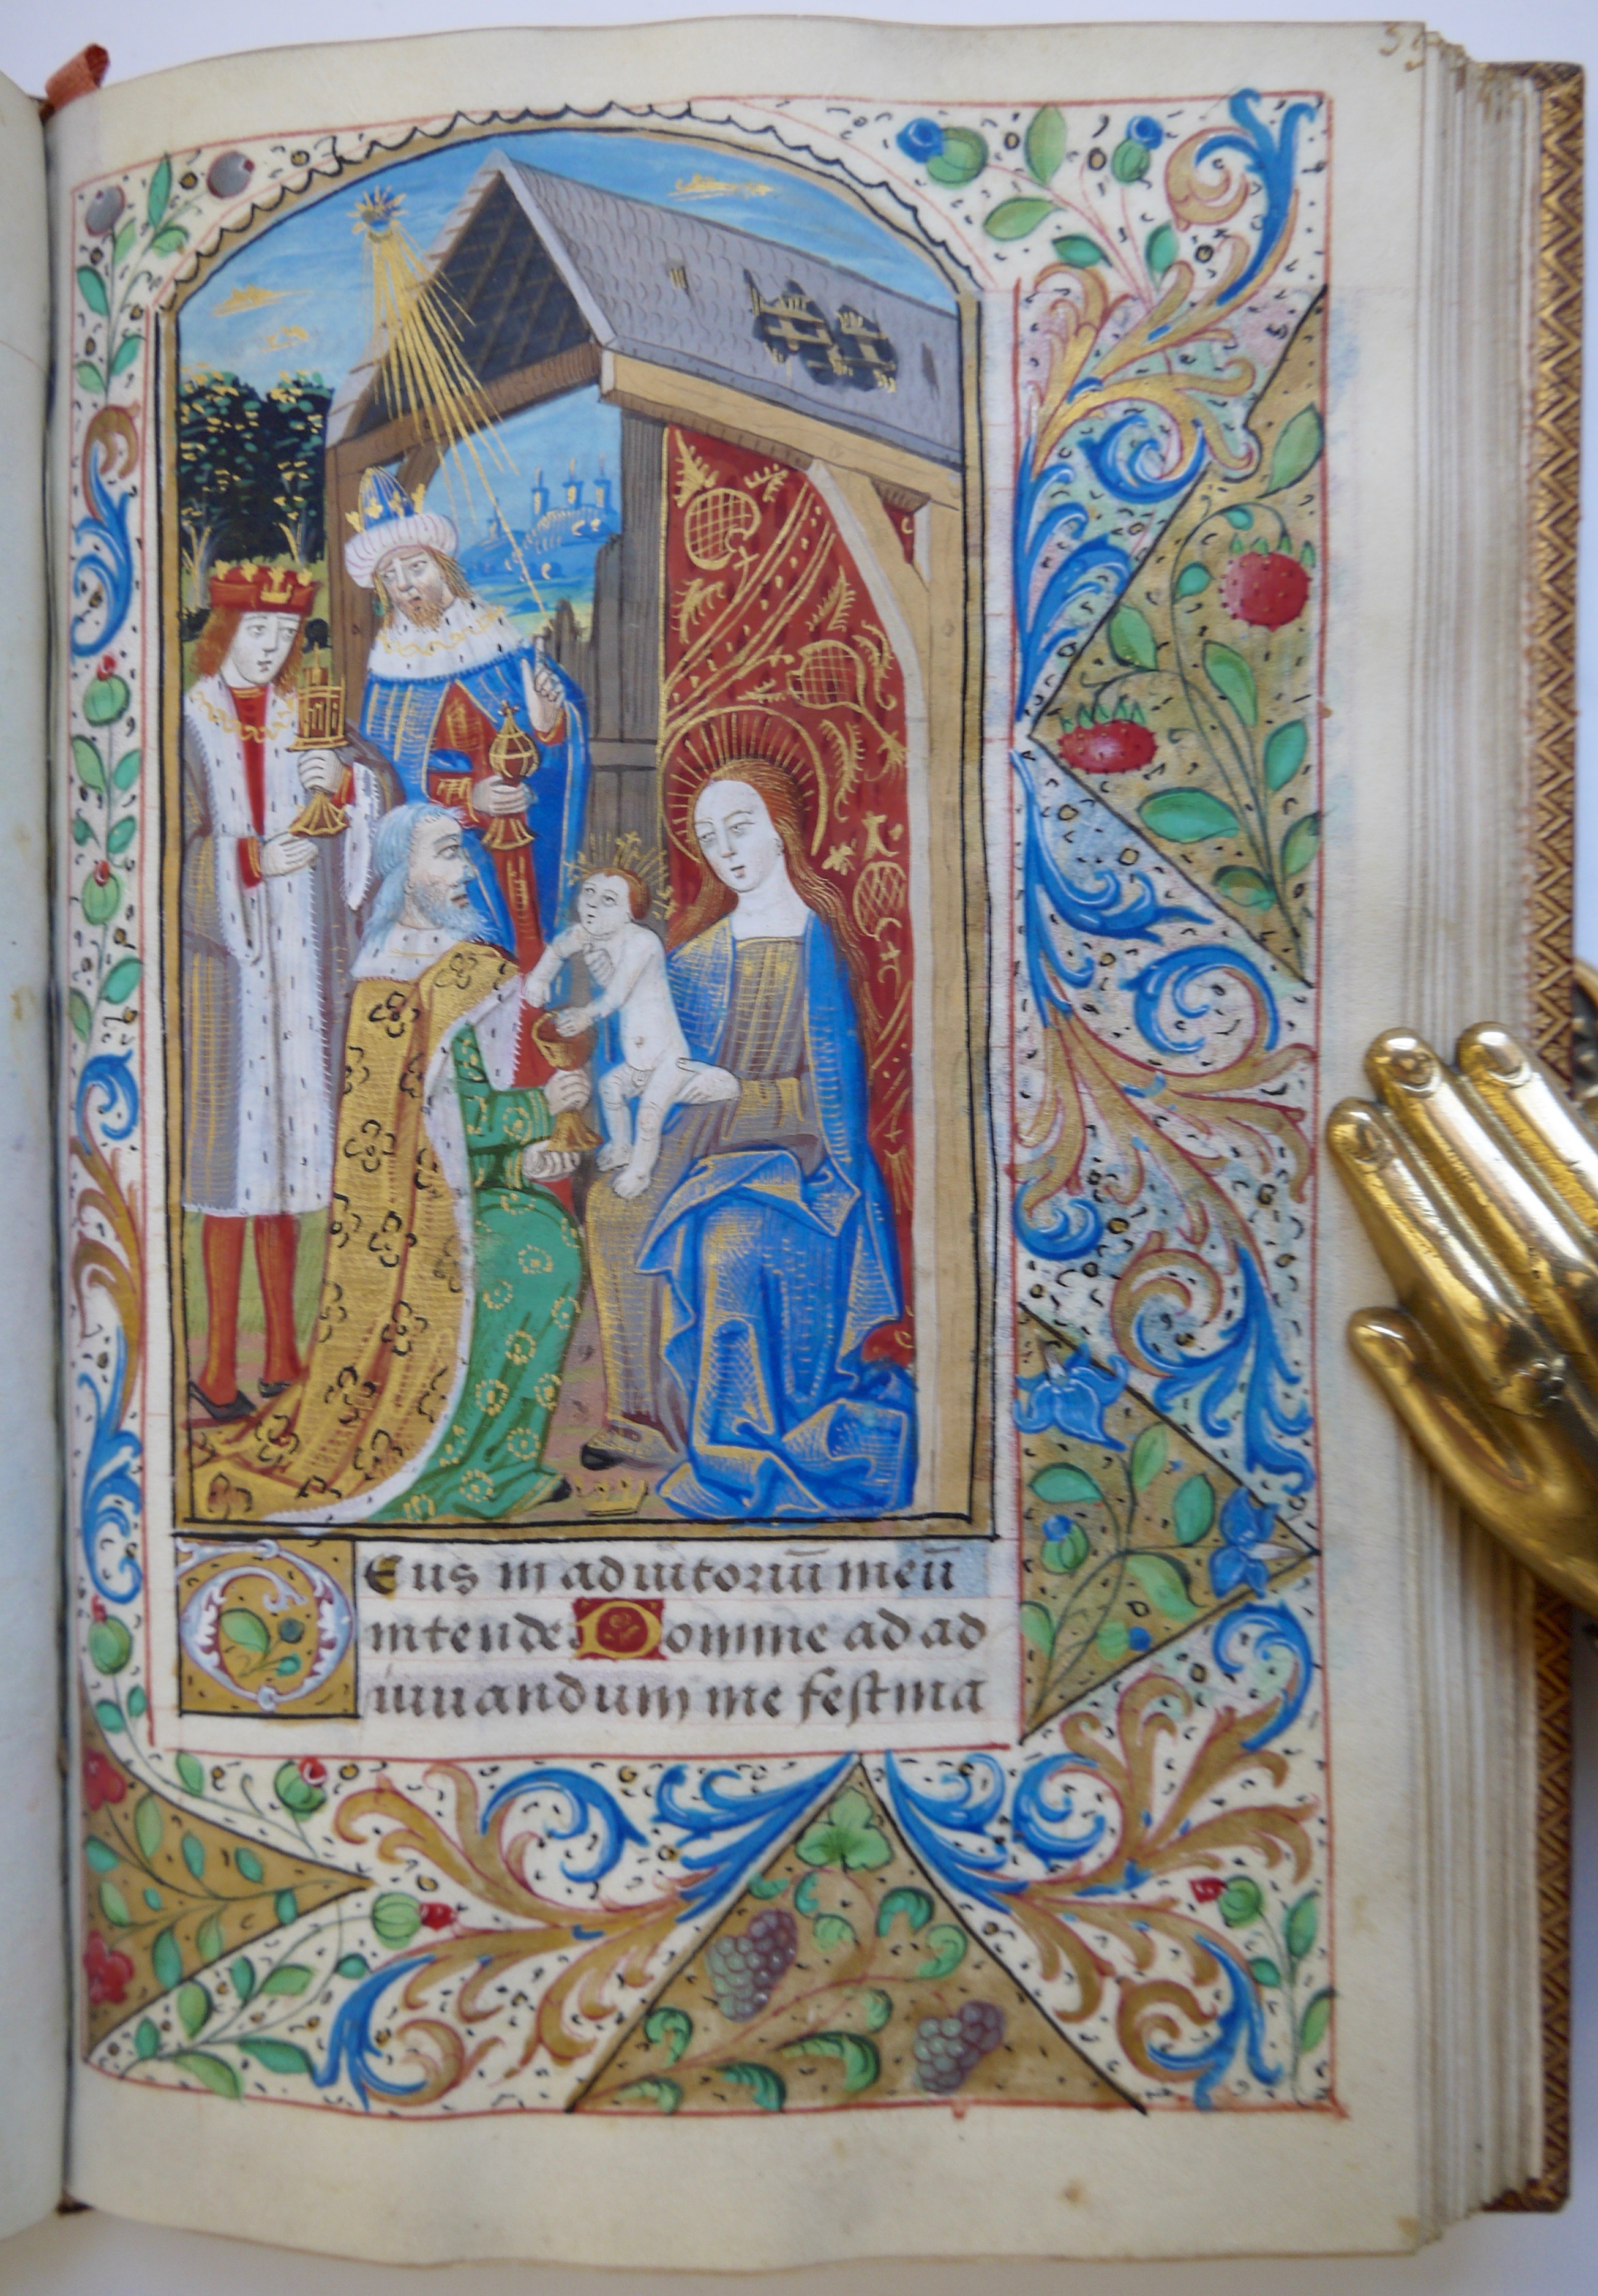 Deus in adiutoriū meū
intende. Domine ad ad
iuuandum me festina